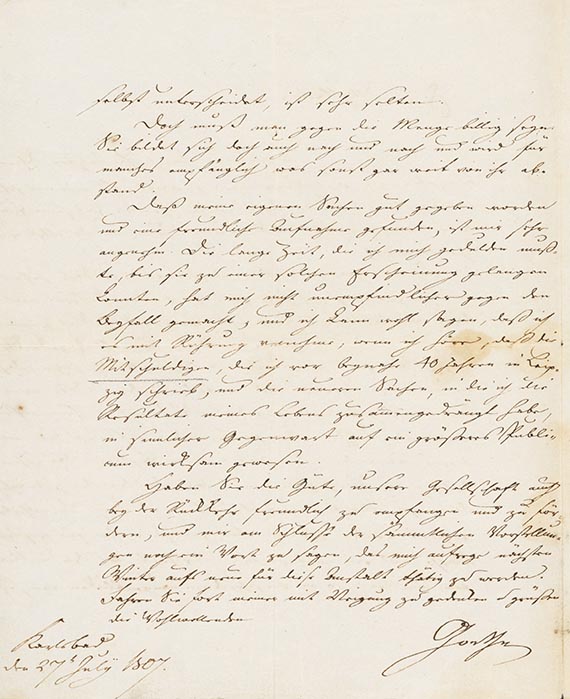 selbst unterscheidet, ist sehr selten.
Doch muß man gegen die Menge billig seyn.
Sie bildet sich doch auch nach und nach und wird für
manches empfänglich was sonst gar weit von ihr ab-
stand.
Daß meine eigenen Sachen gut gegeben worden
und eine freundliche Aufnahme gefunden, ist mir sehr
angenehm. Die lange Zeit, die ich mich gedulden muß-
te, bis sie zu einer solchen Erscheinung gelangen
konnten, hat mich nicht unempfindlicher gegen den
Beyfall gemacht, und ich kann wohl sagen, daß ich
es mit Rührung vernehme, wenn ich höre, daß die
Mitschuldigen, die ich vor beynahe 40 Jahren in Leip-
zig schrieb, und die neueren Sachen, in die ich die
Resultate meines Lebens zusammengedrängt habe,
in sinnlicher Gegenwart auf ein größeres Publi-
cum wirksam gewesen.
Haben Sie die Güte, unsere Gesellschaft auch
bey der Rückkehr freundlich zu empfangen und zu för-
dern, und mir am Schlusse der sämmtlichen Vorstellun-
gen noch ein Wort zu sagen, das mich aufrege nächsten
Winter aufs neue für diese Anstalt thätig zu werden.
Fahren Sie fort meiner mit Neigung zu gedenken grüßen
die Wohlwollenden
Karlsbad
den 27t July 1807.
Goethe